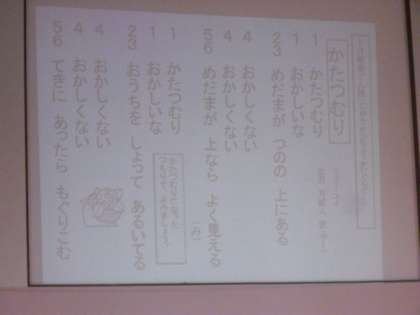 かたつむり
1 かたつむり
1 おかしいな
23 めだまが つのの 上にある
4 おかしくない
4 おかしくない
56 めだまが 上なら よく見える
(み)
1 かたつむり
1 おかしいな
23 おうちを しょって あるいてる
4 おかしくない
4 おかしくない
56 てきに あったら もぐりこむ
かたつむりになった
つもりで、